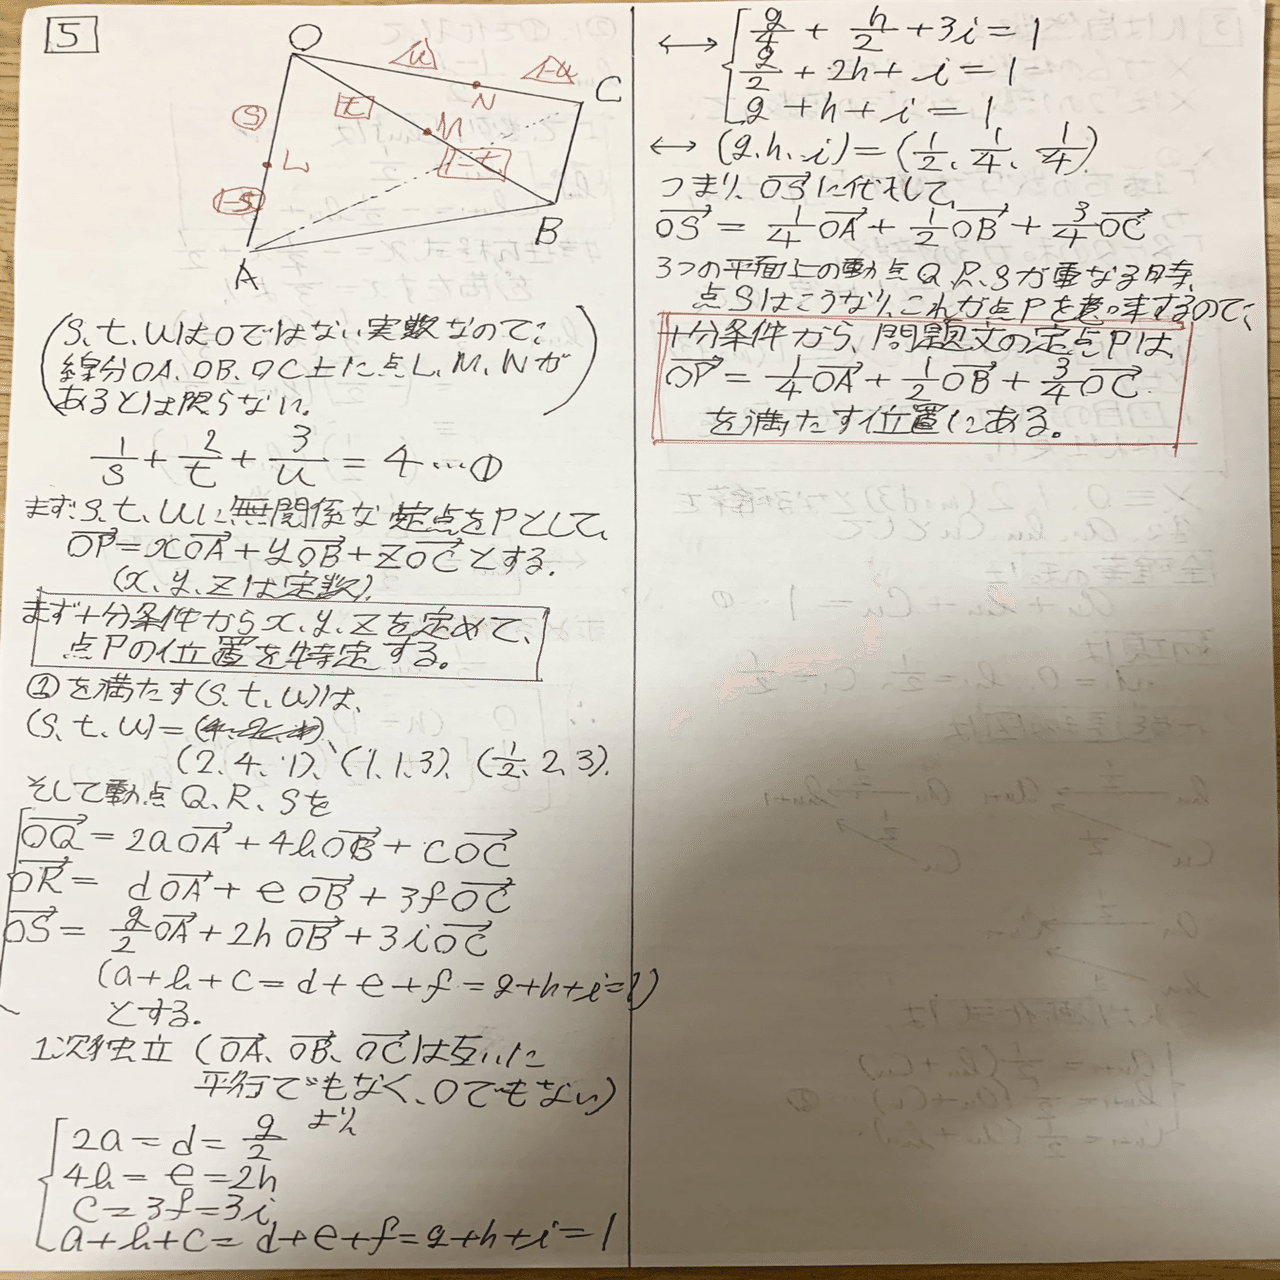 5
O
u
1-u
C
N
t
s
M
L
1-t
1-s
B
A
(s, t, uは0ではない実数なので、
線分OA、OB、OC上に点L、M、Nが
あるとは限らない。)
1/s + 2/t + 3/u = 4 …①
まず、s、t、uに無関係な定点をPとして、
OP→ = xOA→ + yOB→ + zOC→とする。
(x、y、zは定数)
まず十分条件からx、y、zを定めて、
点Pの位置を特定する。
①を満たす(s、t、u)は、
(s、t、u)=
(2、4、1)、(1、1、3)、(1/2、2、3)、
そして動点Q、R、Sを
OQ→ = 2aOA→ + 4bOB→ + cOC→
OR→ = dOA→ + eOB→ + 3fOC→
OS→ = g/2 OA→ + 2hOB→ + 3iOC→
(a+b+c=d+e+f=g+h+i=1)
とする。
1次独立(OA→、OB→、OC→は互いに
平行でもなく、0でもない)
より
2a = d = g/2
4b = e = 2h
c = 3f = 3i
a+b+c = d+e+f = g+h+i = 1
⟷ g/4 + h/2 + 3i = 1
g/2 + 2h + i = 1
g + h + i = 1
⟷ (g、h、i) = (1/2、1/4、1/4)
つまり、OS→に代入して、
OS→ = 1/4 OA→ + 1/2 OB→ + 3/4 OC→
3つの平面上の動点Q、R、Sが重なる時、
点Sはこうなり、これが点Pを意味するので、
十分条件から、問題文の定点Pは、
OP→ = 1/4 OA→ + 1/2 OB→ + 3/4 OC→
を満たす位置にある。